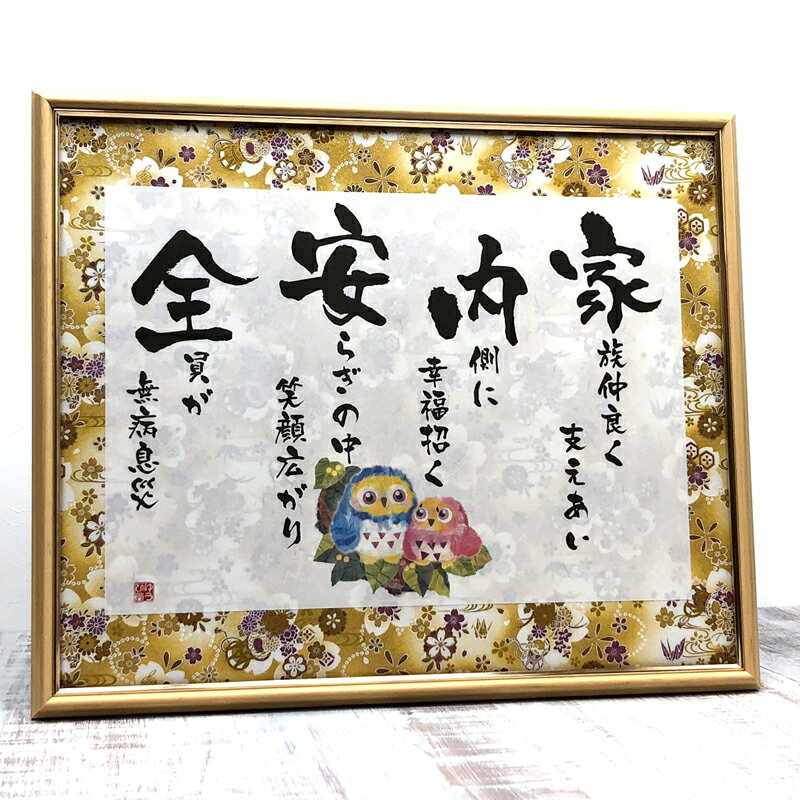 家族仲良く
支えあい
内側に
幸福招く
安らぎの中
笑顔広がり
全員が
無病息災